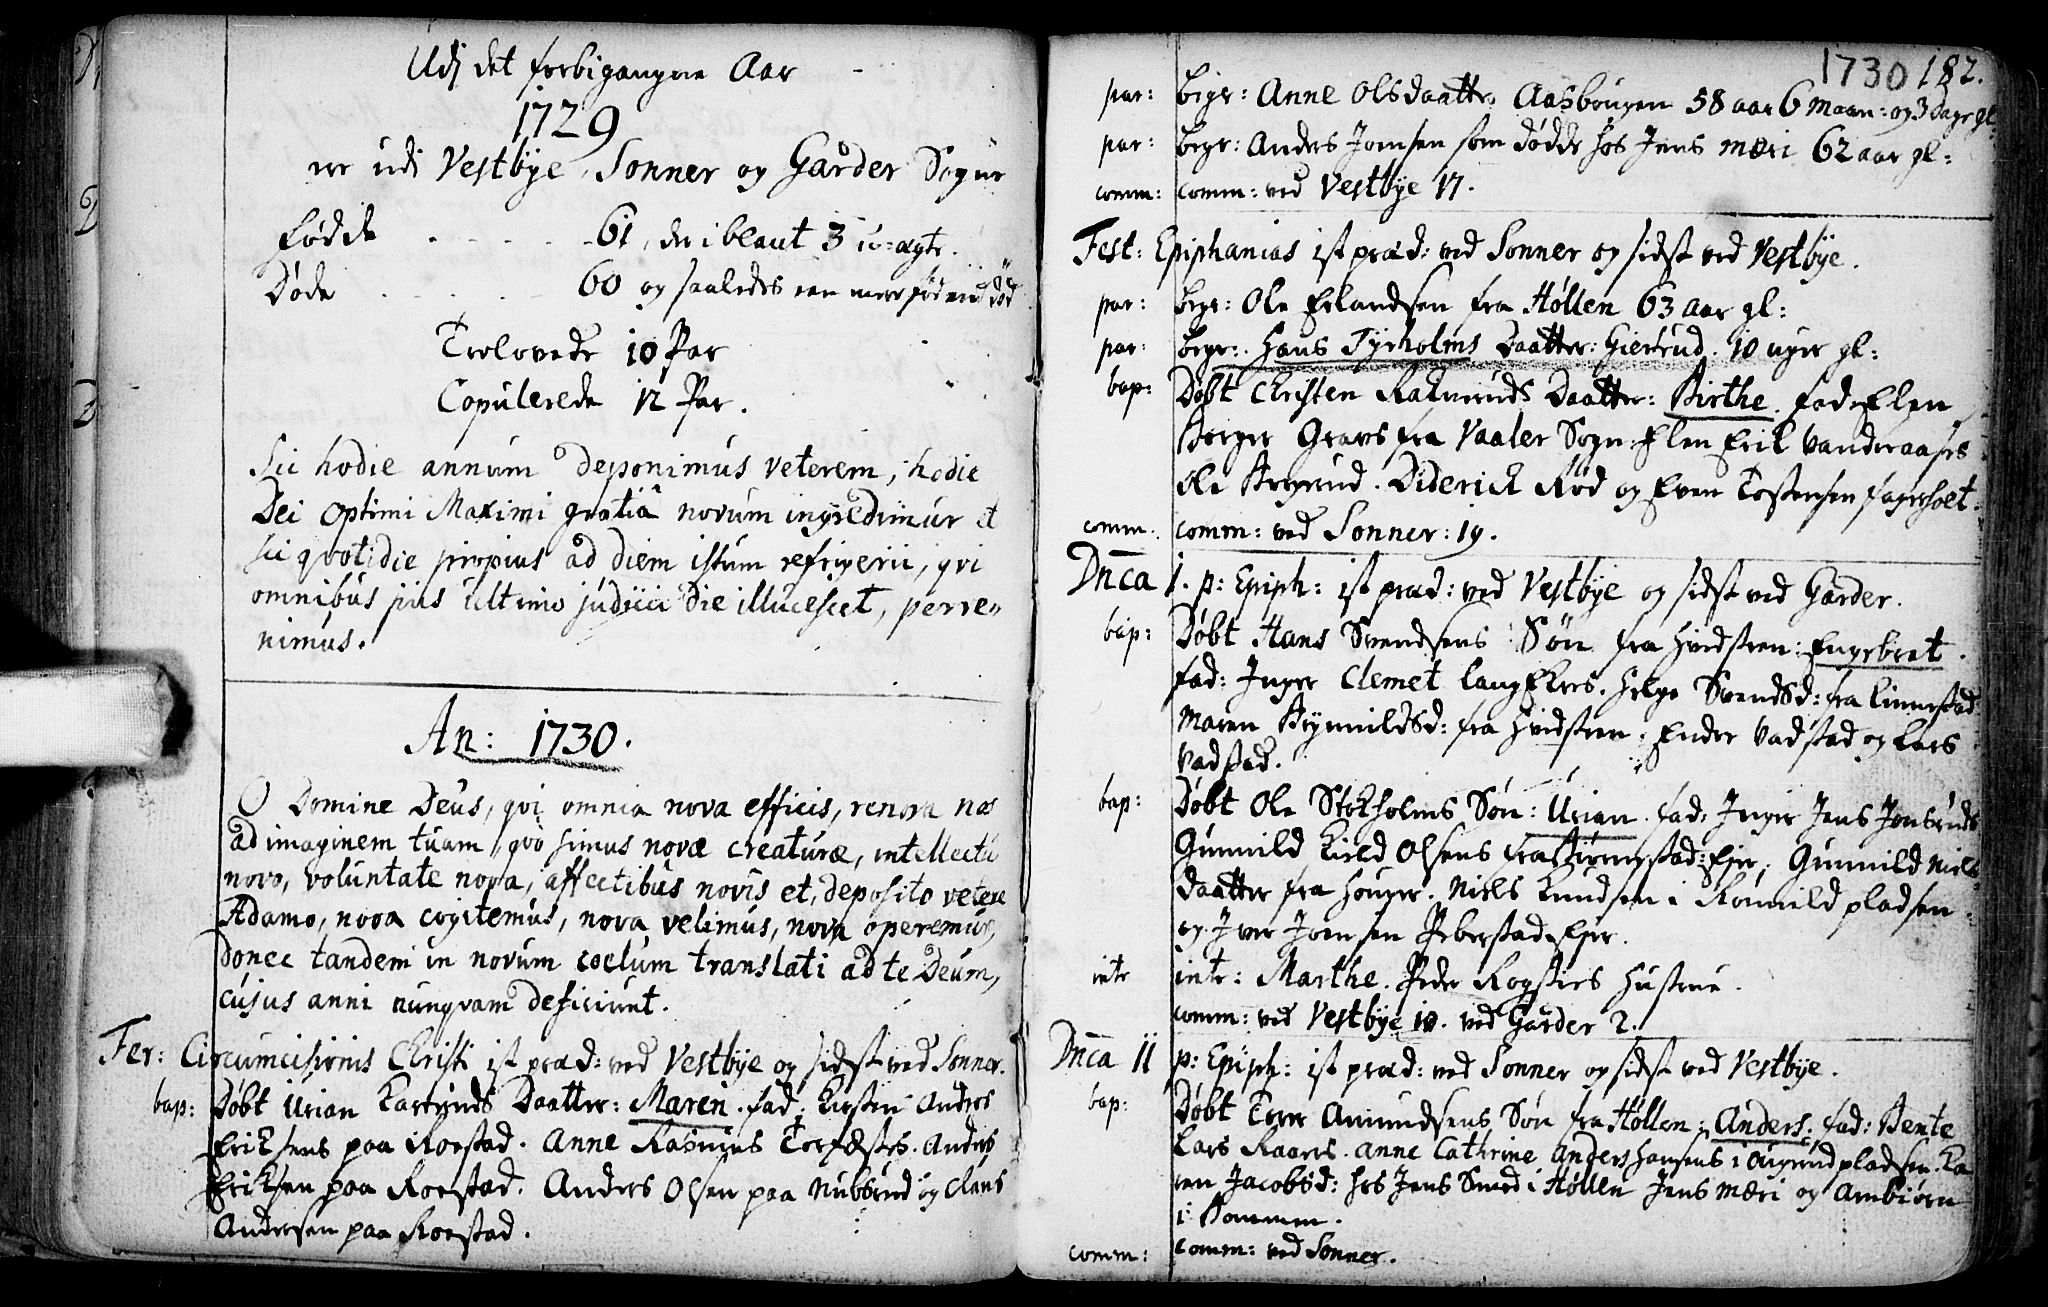 Udj det forbigangne Aar
1729
ere udi Vestbÿe, Sonner og Garder Sogne
Fødde 61, der iblant 3 u-ægte.
Døde 60 og saaledes een meer fød end død
Trolovede 10 Par
Copulerede 12 Par.
Sic hodie annum deponimus veterem, hodie
Dei Optimi Maximi gratiâ novum ingredimur et
sic qvotidie propius ad diem istum refrigerii, qvi
omnibus piis ultimo judicii die illucescet, perve-
nimus.
An: 1730.
O Domine Deus, qvi omnia nova efficis, renova nos
ad imaginem tuam, qvo simus novæ creaturæ, intellectu
novo, voluntate nova, affectibus novis et, deposito vetere
Adamo, nova cogitemus, nova velimus, nova operemus,
donec tandem in novum coelum translati ad te Deum,
cujus anni nunqvam deficiunt.
Fer: Circumcisionis Christi ist præd: ved Vestbÿe og sidst ved Sonner.
bap: Døbt Urian Daatter: Maren. fad: Kirsten Anders
Eriksens paa Roestad. Anne Rasmus Anders
Eriksen paa Roestad. Anders Olsen paa Nubbrud og Claus
Andersen paa Roestad.
1730 182.
par: begr: Anne Olsdaatter Aasbougen 58 aar 6 maan: og 3 dage gl:
par: begr: Anders Joensen som døde hos Jens Mæri 62 aar gl:
comm: comm: ved Vestbÿe 17.
Fest: Epiphanias ist præd: ved Sonner og sidst ved Vestbÿe.
par: begr: Ole Erlandsen fra Høllen 63 aar gl:
par: begr: Hans Tyrholms Daatter: Giertrud. 10 uger gl:
bap: Døbt Christen Daatter: Birthe. fad: Elen
Borger Gravs fra Vaaler Sogn: Elen Erik
Ole Diderick Rød og Even Tostensen
comm: comm: ved Sonner: 19.
Dnca 1. p: Epiph: ist præd: ved Vestbÿe og sidst ved Garder.
bap: Døbt Hans Svendsens Søn fra Hvidsteen: Engebret.
fad: Inger Clemet Helge Svendsd: fra
Maren fra Hvidsteen. Ender Vadstad og Lars
Vadstad.
bap: Døbt Ole Stokholms Søn: Urian. fad: Inger Jens Jonsruds
Gunnild Kield Olsens fra Gunnild Niels-
daatter fra Houger. Niels Knudsen i pladsen
og Iver Joensen
intr intr: Marthe. Peder Hustrue.
comm: ved Vestbÿe 10. ved Garder 2.
Dnca II p: Epiph: ist præd: ved Sonner og sidst ved Vestbÿe.
bap: Døbt Tore Amundsens Søn fra Høllen: Anders. fad: Bente
Lars Anne Cathrine Anders Hansens i pladsen. Ka-
ren Jacobsd: hos Jens Smed i Høllen Jens Mæri og Ambiørn
i
comm: comm: ved Sonner.